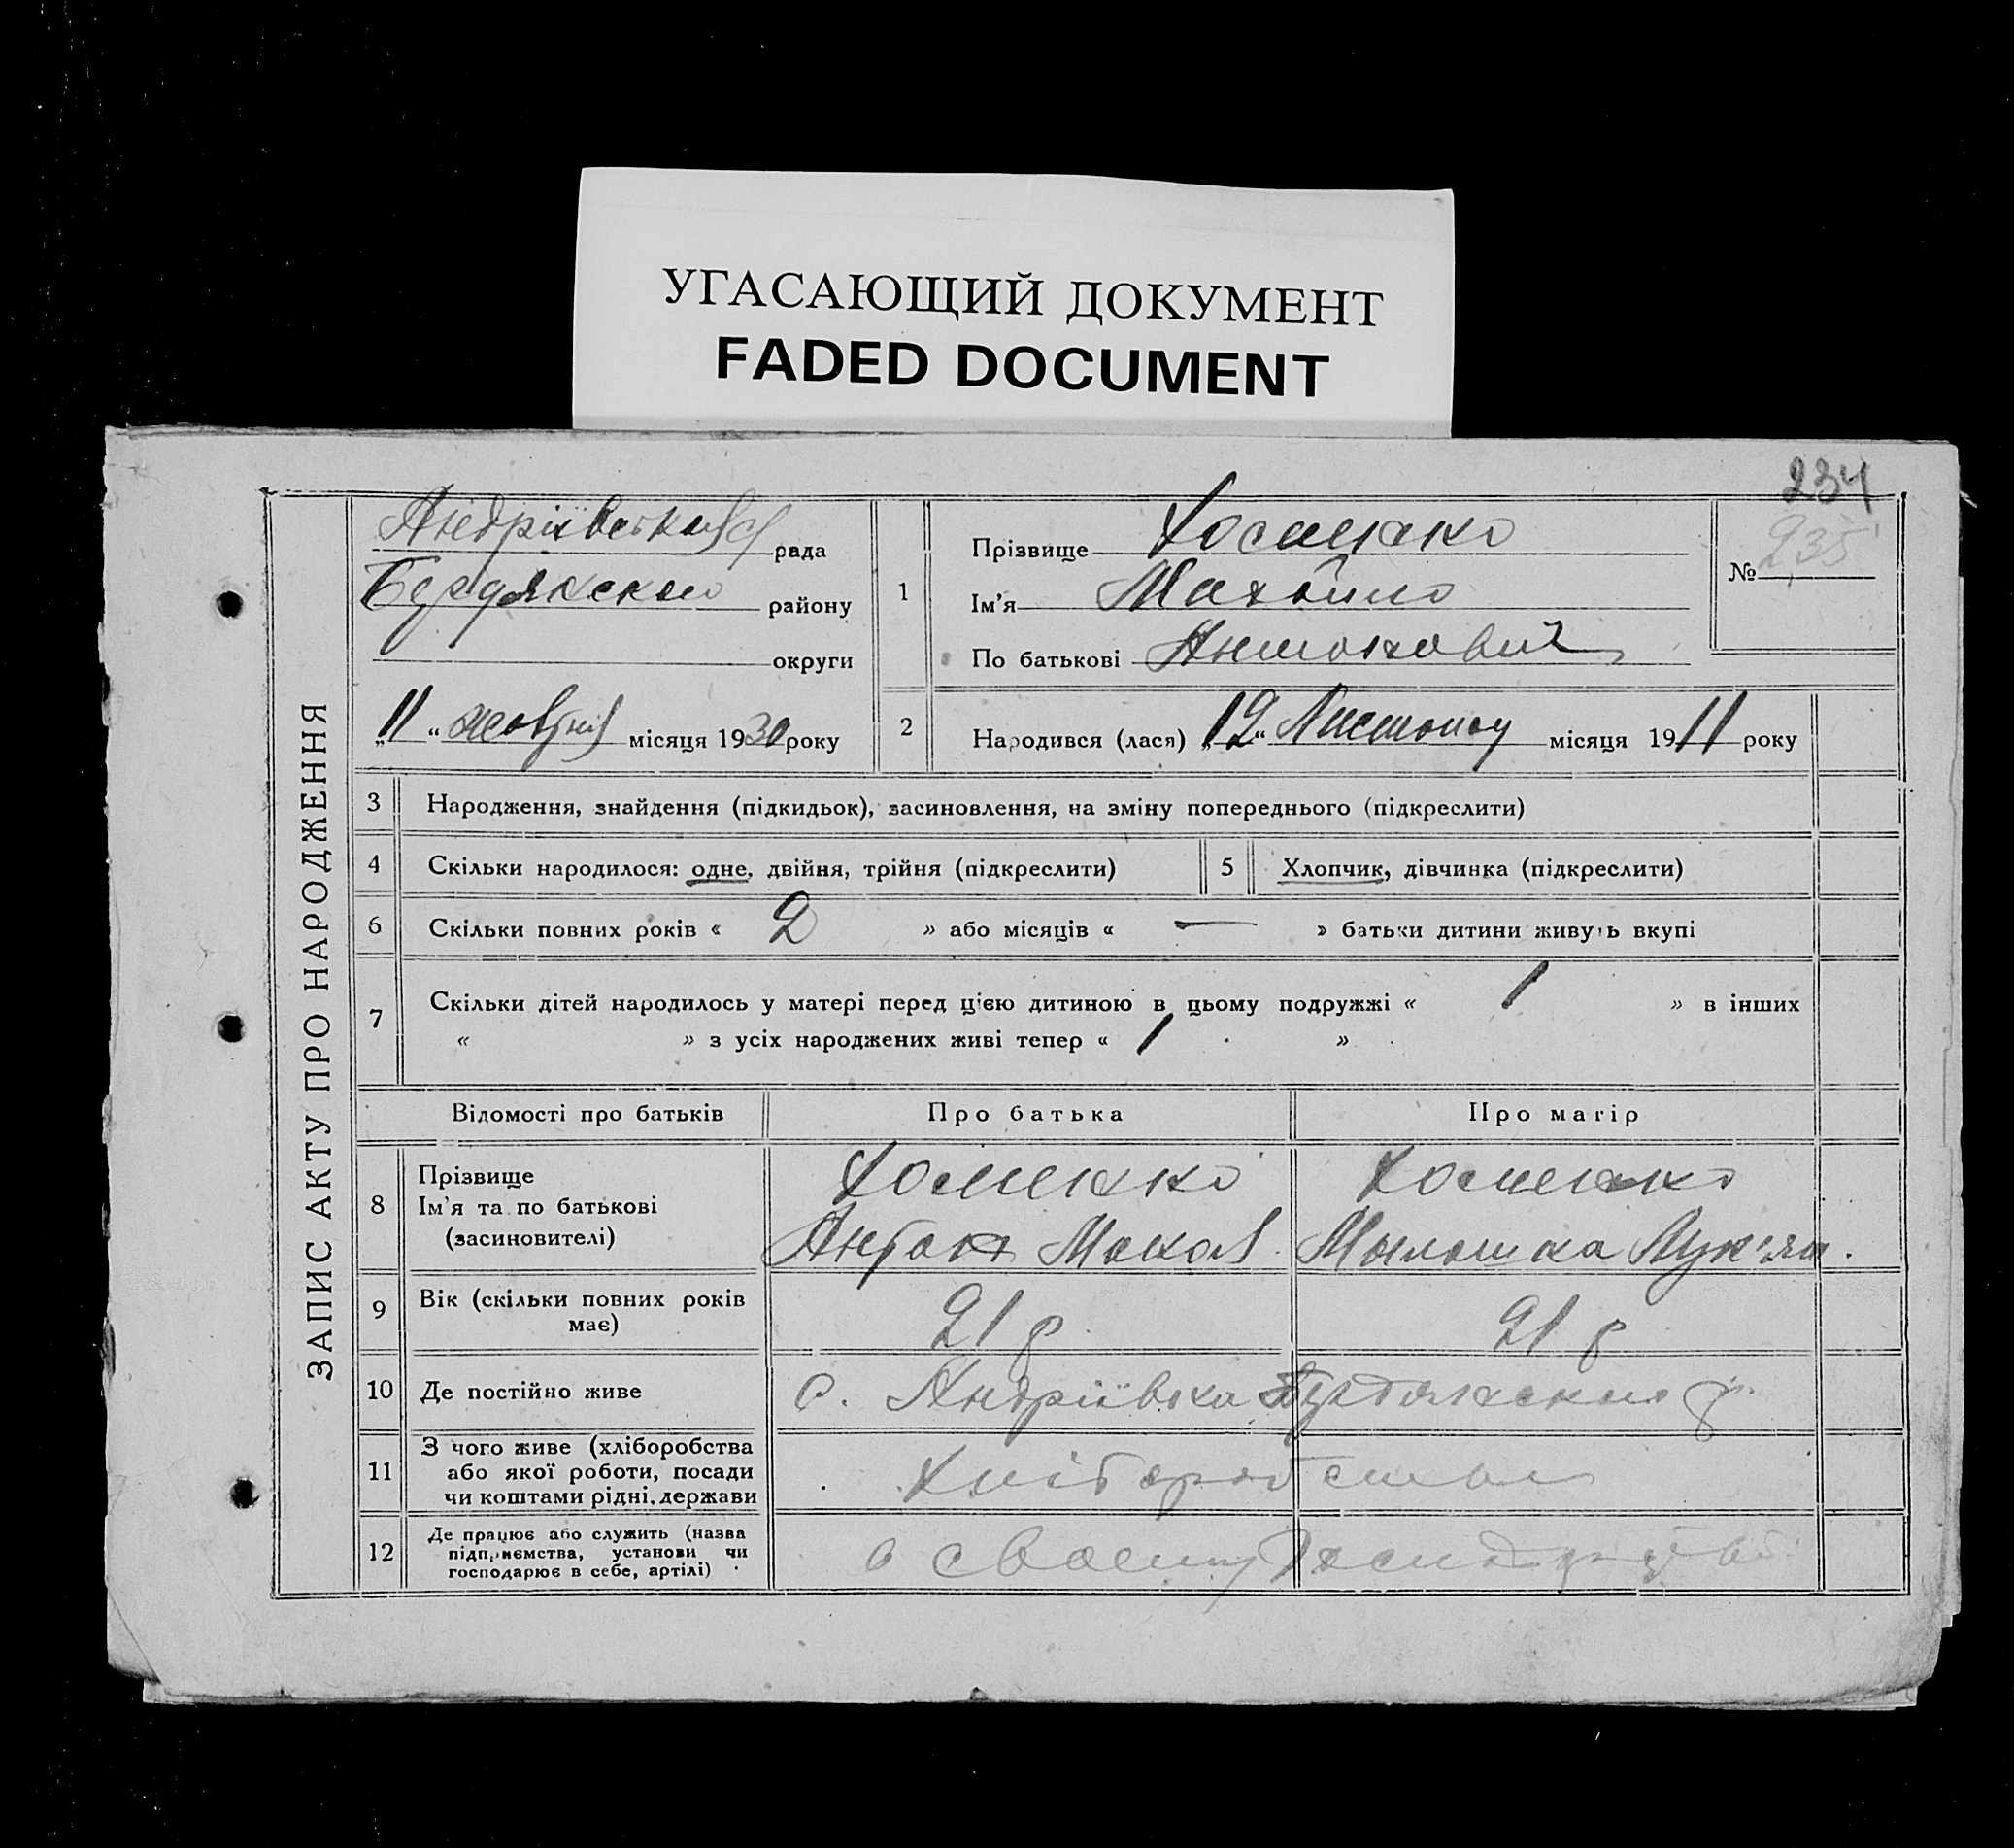 УГАСАЮЩИЙ ДОКУМЕНТ
FADED DOCUMENT
234
ЗАПИС АКТУ ПРО НАРОДЖЕННЯ
Андріївська рада
Бердянского району
округи
„11“ жовтня місяця 1930 року
1
Прізвище Хоменко
Ім'я Михайло
По батькові Антонович
№ 235
2
Народився (лася) „12“ Листопад місяця 1911 року
3 Народження, знайдення (підкидьок), засиновлення, на зміну попереднього (підкреслити)
4 Скільки народилося: одне, двійня, трійня (підкреслити) 5 Хлопчик, дівчинка (підкреслити)
6 Скільки повних років « 2 » або місяців « — » батьки дитини живуть вкупі
7 Скільки дітей народилось у матері перед цією дитиною в цьому подружжі « 1 » в інших
« » з усіх народжених живі тепер « 1 »
Відомості про батьків Про батька Про матір
8 Прізвище
Ім'я та по батькові
(засиновителі)
Хоменко
Антон
Хоменко
Лук'ян.
9 Вік (скільки повних років
має)
21 р
21 р
10 Де постійно живе с. Андріївка Бердянского р.
11 З чого живе (хліборобства
або якої роботи, посади
чи коштами рідні, держави
Хліборобства
12 Де працює або служить (назва
підприємства, установи чи
господарює в себе, артілі)
в своєму